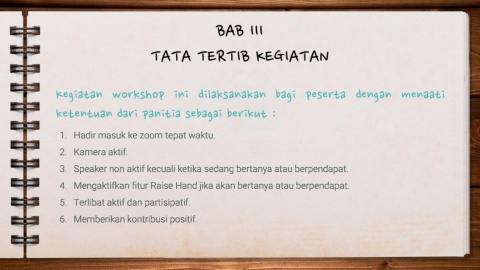 BAB III
TATA TERTIB KEGIATAN
Kegiatan workshop ini dilaksanakan bagi peserta dengan menaati
ketentuan dari panitia sebagai berikut :
1. Hadir masuk ke zoom tepat waktu.
2. Kamera aktif.
3. Speaker non aktif kecuali ketika sedang bertanya atau berpendapat.
4. Mengaktifkan fitur Raise Hand jika akan bertanya atau berpendapat.
5. Terlibat aktif dan partisipatif.
6. Memberikan kontribusi positif.